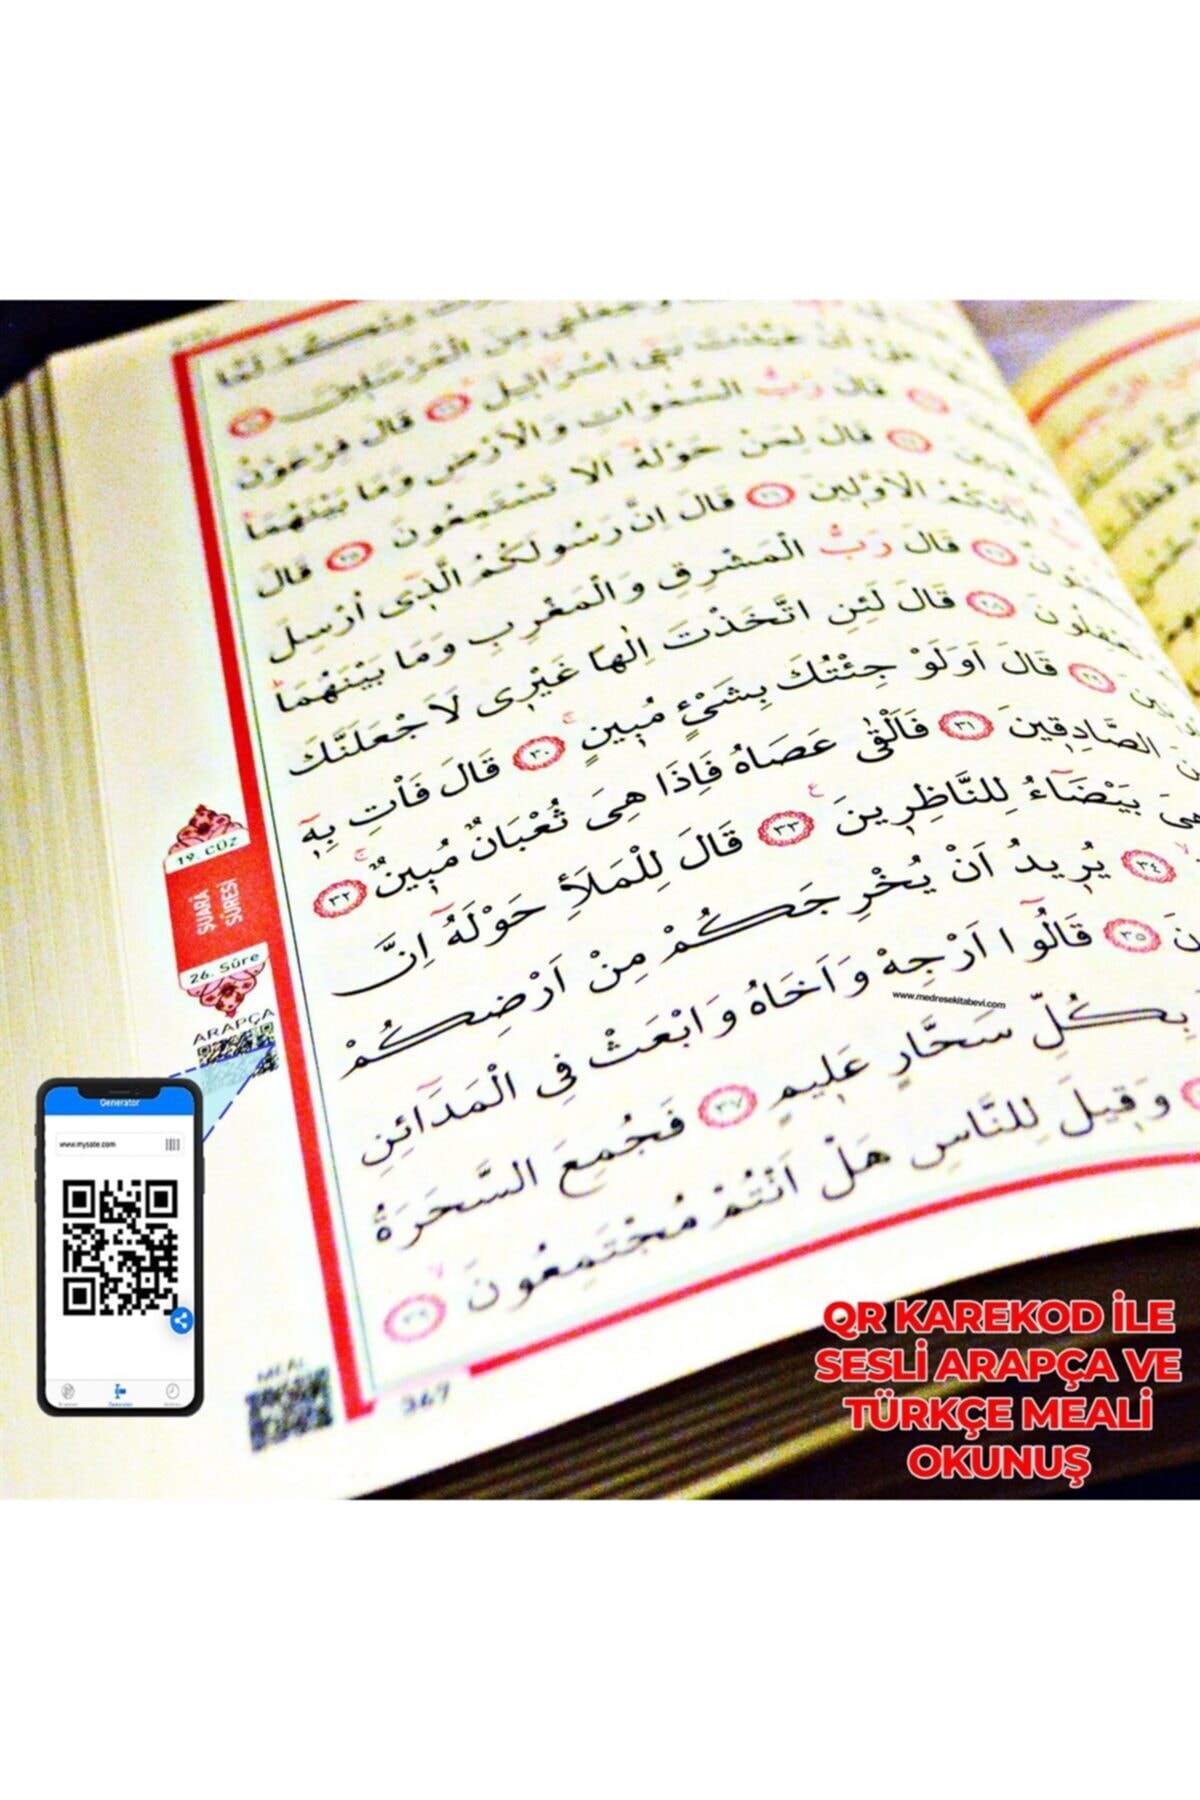 لَمَّا
مِنَ الْمُرْسَلِينَ
بَنِي اِسْرَائِيلَ ﴿٢٢﴾ قَالَ فِرْعَوْنُ
قَالَ رَبُّ السَّمٰوَاتِ وَالْاَرْضِ وَمَا بَيْنَهُمَا
قَالَ لِمَنْ حَوْلَهُ اَلَا تَسْتَمِعُونَ ﴿٢٥﴾ قَالَ
اٰبَائِكُمُ الْاَوَّلِينَ ﴿٢٦﴾ قَالَ اِنَّ رَسُولَكُمُ الَّذِى اُرْسِلَ
﴿٢٧﴾ قَالَ رَبُّ الْمَشْرِقِ وَالْمَغْرِبِ وَمَا بَيْنَهُمَا
تَعْقِلُونَ ﴿٢٨﴾ قَالَ لَئِنِ اتَّخَذْتَ اِلٰهًا غَيْرِى لَاَجْعَلَنَّكَ
﴿٢٩﴾ قَالَ اَوَلَوْ جِئْتُكَ بِشَىْءٍ مُبِينٍ ﴿٣٠﴾ قَالَ فَاْتِ بِهِ
الصَّادِقِينَ ﴿٣١﴾ فَاَلْقٰى عَصَاهُ فَاِذَا هِىَ ثُعْبَانٌ مُبِينٌ ﴿٣٢﴾
هِىَ بَيْضَاءُ لِلنَّاظِرِينَ ﴿٣٣﴾ قَالَ لِلْمَلَاِ حَوْلَهُ اِنَّ
﴿٣٤﴾ يُرِيدُ اَنْ يُخْرِجَكُمْ مِنْ اَرْضِكُمْ
﴿٣٥﴾ قَالُوا اَرْجِهْ وَاَخَاهُ وَابْعَثْ فِى الْمَدَائِنِ
بِكُلِّ سَحَّارٍ عَلِيمٍ ﴿٣٧﴾ فَجُمِعَ السَّحَرَةُ
وَقِيلَ لِلنَّاسِ هَلْ اَنْتُمْ مُجْتَمِعُونَ ﴿٣٩﴾
19. CÜZ
ŞUARÂ
SÛRESİ
26. Sûre
ARAPÇA
www.medresekitabevi.com
Generator
www.mysate.com
Generator
MEAL
367
QR KAREKOD İLE
SESLİ ARAPÇA VE
TÜRKÇE MEALİ
OKUNUŞ